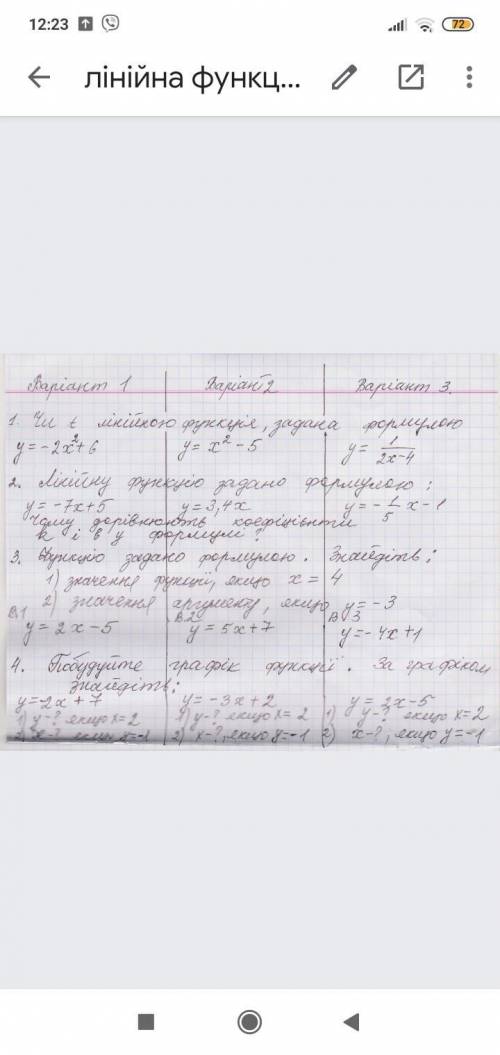 12:23 72
лінійна функц...
Варіант 1 Варіант 2 Варіант 3.
1. Чи є лінійною функція, задана формулою
y = -2x² + 6 y = x² - 5 y = 1/(2x-4)
2. Лінійну функцію задано формулою:
y = -7x + 5 y = 3,4x y = -1/5 x - 1
Чому дорівнюють коефіцієнти
k і в у формулі?
3. Функцію задано формулою. Знайдіть:
1) значення функції, якщо x = 4
2) значення аргументу, якщо y = -3
В1 В2 В3
y = 2x - 5 y = 5x + 7 y = -4x + 1
4. Побудуйте графік функції. За графіком
знайдіть:
y = 2x + 7 y = -3x + 2 y = 2x - 5
1) y-? якщо x = 2 1) y-? якщо x = 2 1) y-? якщо x = 2
2) x-? якщо 2) x-?, якщо y = -1 2) x-?, якщо y = -1